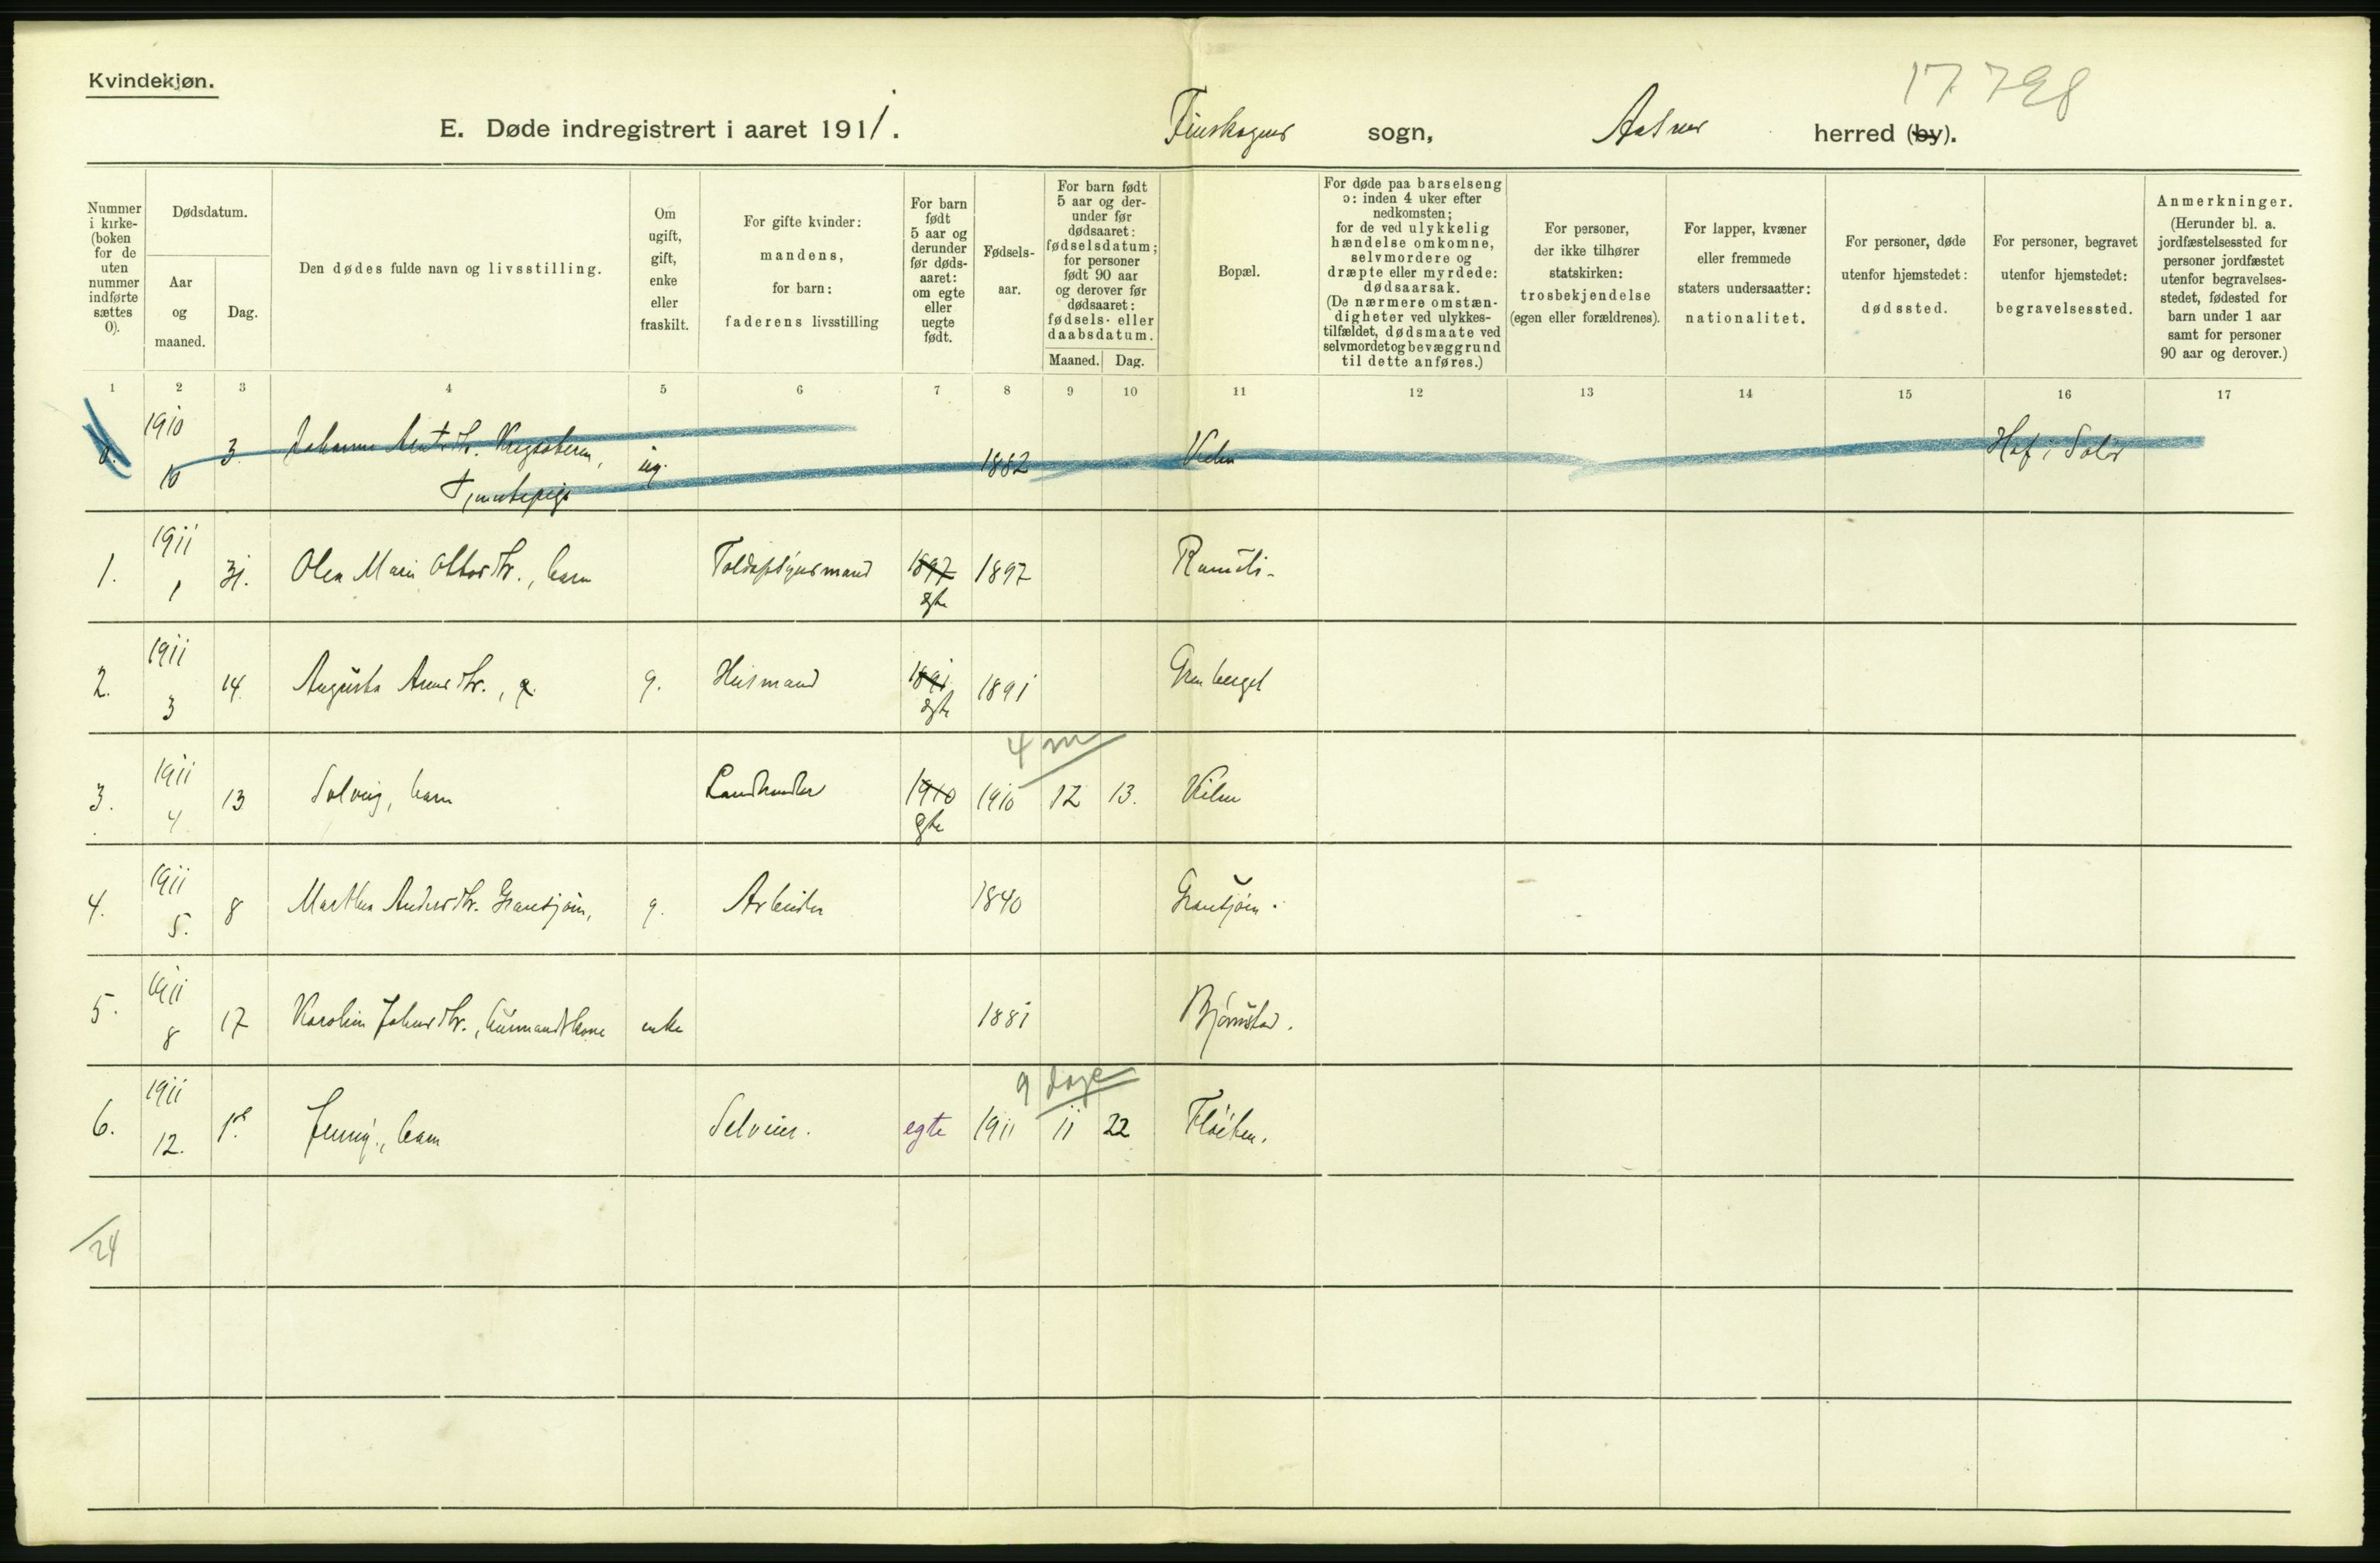 Kvindekjøn.
17 798
E. Døde indregistrert i aaret 1911. Finskogens sogn, Aasnes herred (by).
Nummer i kirke-(boken for de uten nummer indførte sættes 0).
Dødsdatum.
Aar og maaned.
Dag.
Den dødes fulde navn og livsstilling.
Om ugift, gift, enke eller fraskilt.
For gifte kvinder: mandens, for barn: faderens livsstilling
For barn født 5 aar og derunder før dødsaaret: om egte eller uegte født.
Fødselsaar.
For barn født 5 aar og derunder før dødsaaret: fødselsdatum; for personer født 90 aar og derover før dødsaaret: fødsels- eller daabsdatum.
Maaned. Dag.
Bopæl.
For døde paa barselseng ɔ: inden 4 uker efter nedkomsten; for de ved ulykkelig hændelse omkomne, selvmordere og dræpte eller myrdede: dødsaarsak. (De nærmere omstændigheter ved ulykkestilfældet, dødsmaate ved selvmordet og bevæggrund til dette anføres.)
For personer, der ikke tilhører statskirken: trosbekjendelse (egen eller forældrenes).
For lapper, kvæner eller fremmede staters undersaatter: nationalitet.
For personer, døde utenfor hjemstedet: dødssted.
For personer, begravet utenfor hjemstedet: begravelsessted.
Anmerkninger. (Herunder bl. a. jordfæstelsessted for personer jordfæstet utenfor begravelsesstedet, fødested for barn under 1 aar samt for personer 90 aar og derover.)
1 2 3 4 5 6 7 8 9 10 11 12 13 14 15 16 17
0. 1910 10 3. Johanne ug. 1882 Hof i Solør
Tjenestepige
1. 1911 1 31. Olea Marie Ottosdtr., barn Toldopsynsmand 1897 egte 1897
2. 1911 3 14 Augusta g. Husmand 1891 egte 1891
4 m
3. 1911 4 13 Solveig, barn Landhandler 1910 egte 1910 12 13.
4. 1911 5. 8 Marthea Andersdtr. Gransjøen, g. Arbeider 1840 Gransjøen.
5. 1911 8 17 Karolin Johnsdtr., husmandskone enke 1881 Bjørnstad.
9 dage
6. 1911 12. 1ste Jenny, barn Selveier. egte 1911 11 22 Fløiten.
24